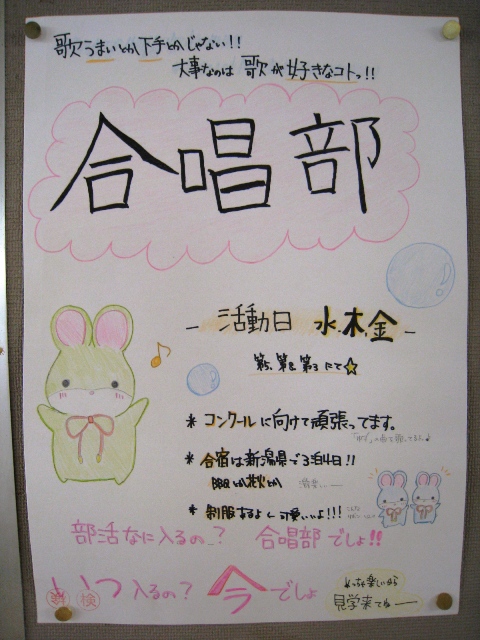 歌うまいとか下手とかじゃない!!
大事なのは歌が好きなコトっ!!
合唱部
－活動日 水.木.金－
にて☆
＊コンクールに向けて頑張ってます。
＊合宿は新潟県で3泊4日!!
BBQとか とか
＊制服 可愛いよ!!!
部活なに入るの？ 合唱部でしょ!!
いつ入るの？今でしょ
見学来てねー